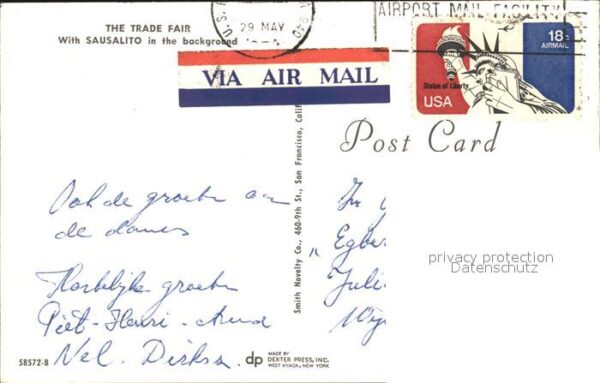 THE TRADE FAIR
With SAUSALITO in the background
U.S.
29 MAY
AIRPORT MAIL FACILITY
18c
AIRMAIL
Statue of Liberty
USA
VIA AIR MAIL
Post Card
Ook de groeten aan
de dames
Hartelijke groeten
Piet - Henri - 
Nel. Dirksz.
In
"Egber
Juli
privacy protection
Datenschutz
Smith Novelty Co., 460-9th St., San Francisco, Calif
58572-B
dp
MADE BY
DEXTER PRESS, INC.
WEST NYACK, NEW YORK